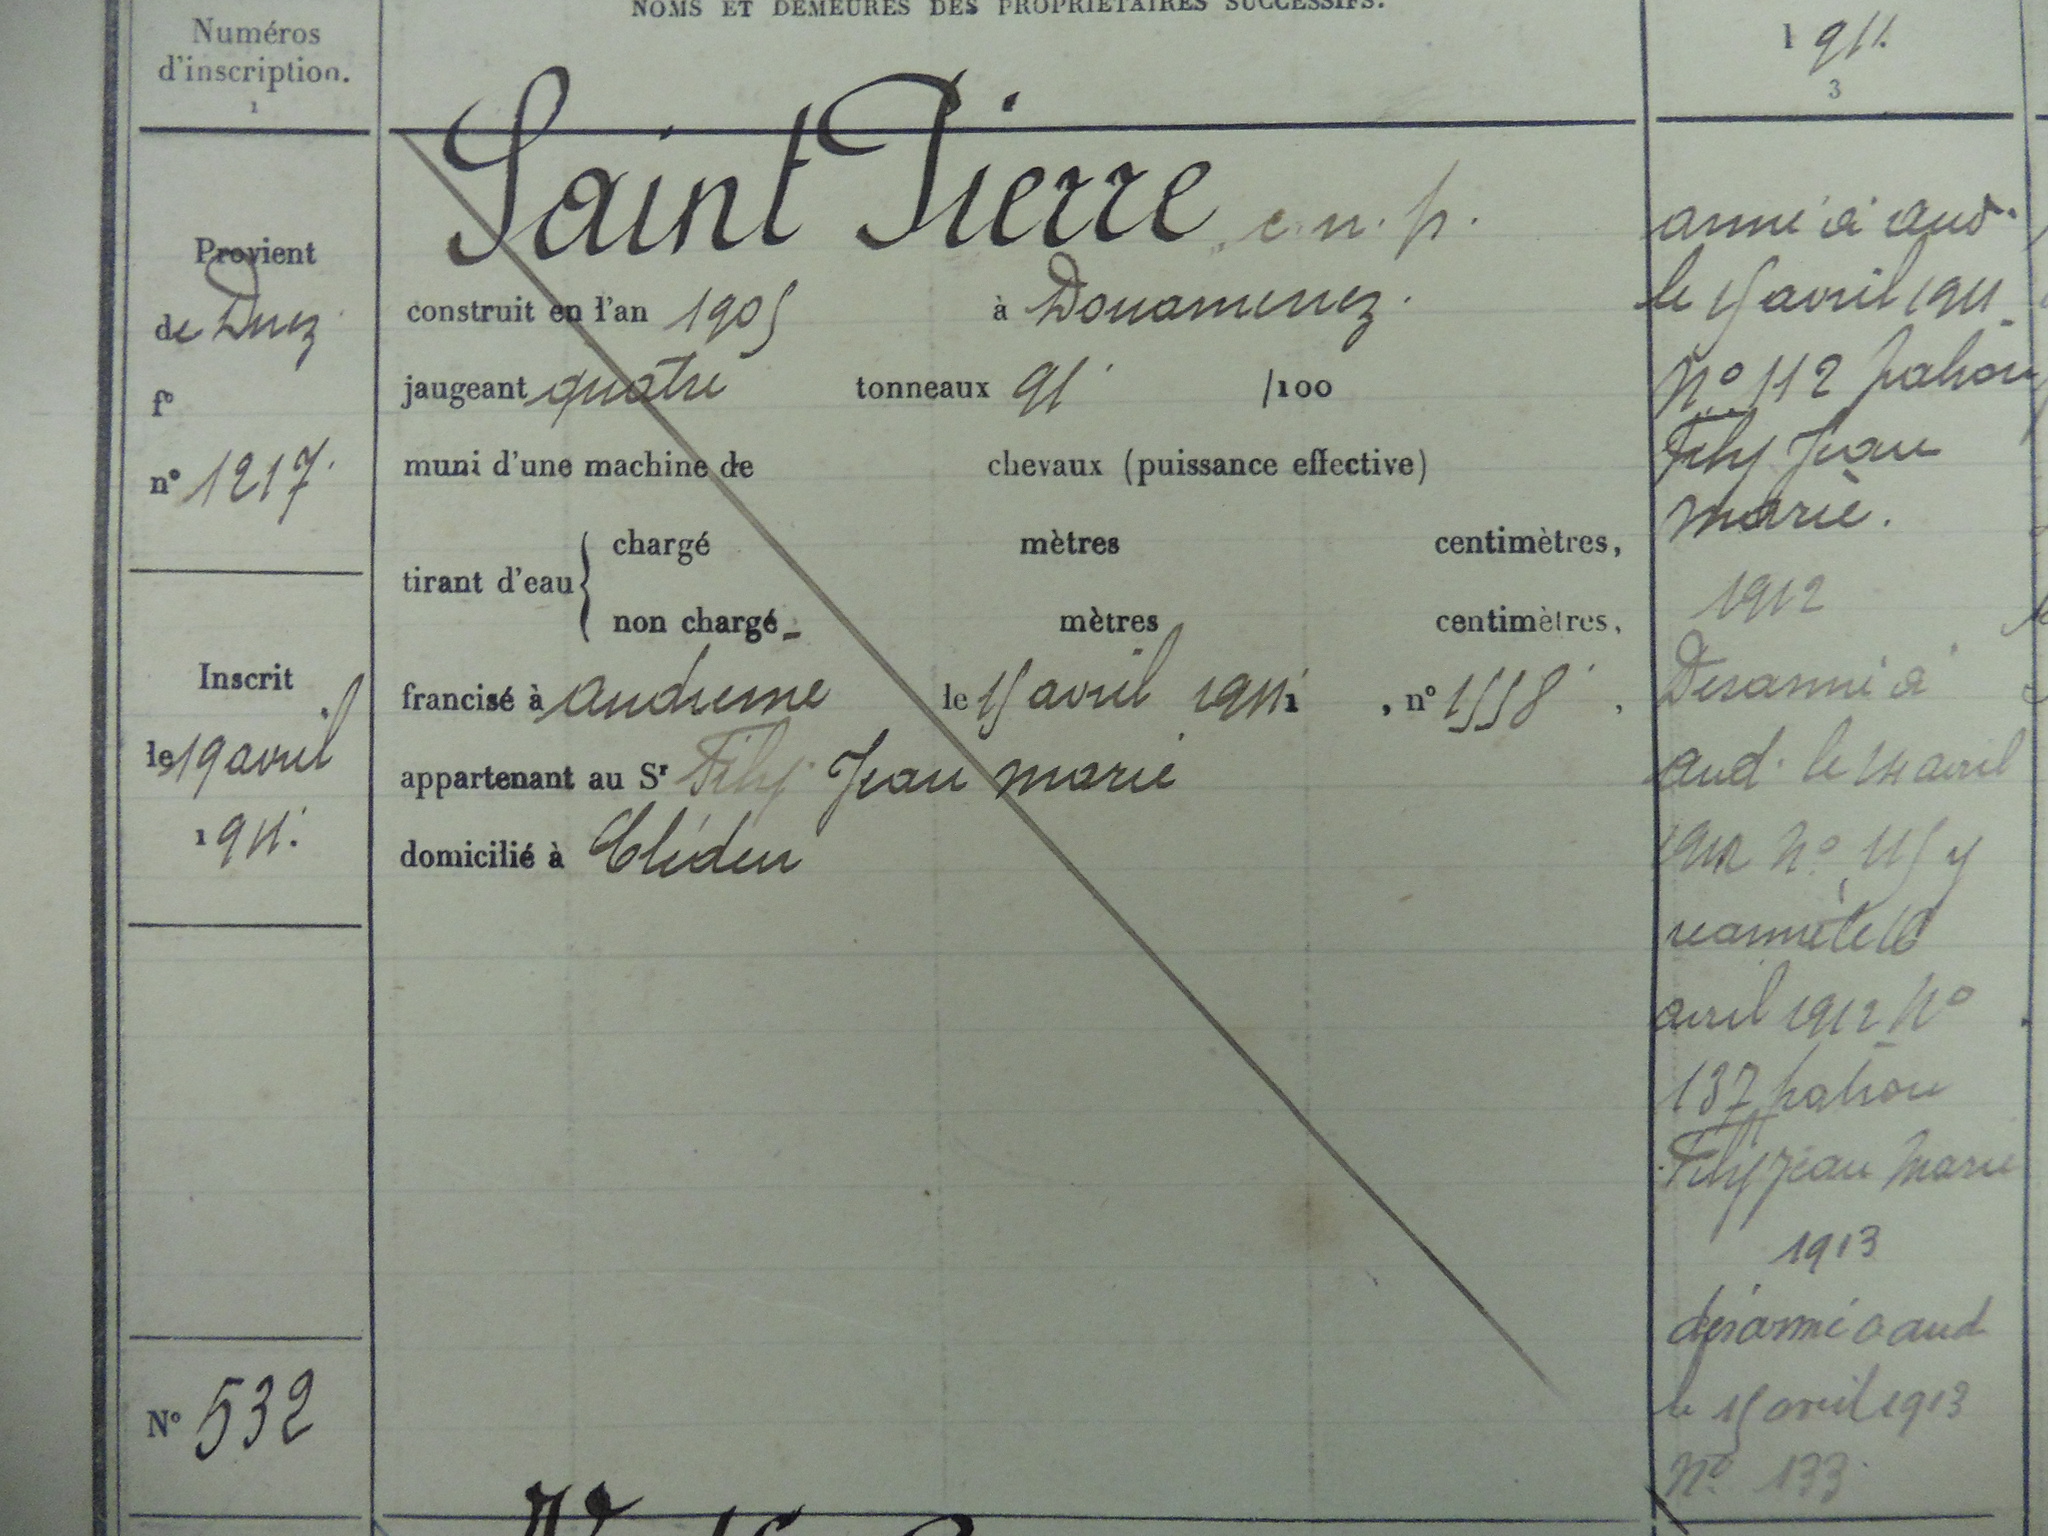 NOMS ET DEMEURES DES PROPRIÉTAIRES SUCCESSIFS.
Numéros
d'inscription.
1
1911.
3
Saint Pierre c. n. p.
Provient
de Dnez
f°
n° 1217.
construit en l'an 1905 à Douarnenez.
jaugeant quatre tonneaux 91 /100
muni d'une machine de chevaux (puissance effective)
tirant d'eau { chargé mètres centimètres,
non chargé mètres centimètres,
Inscrit
le 19 avril
1911.
francisé à audierne le 15 avril 1911 , n° 1558 ,
appartenant au Sr Fily Jean marie
domicilié à Cléden
N° 532
armé à aud.
le 15 avril 1911
N° 112 patron
Fily Jean
marie.
1912
Desarmé à
aud. le 14 avril
1912 N° 115 y
rearmé le 16
avril 1912 N°
137 patron
Fily Jean Marie
1913
désarmé a aud
le 15 avril 1913
N° 133